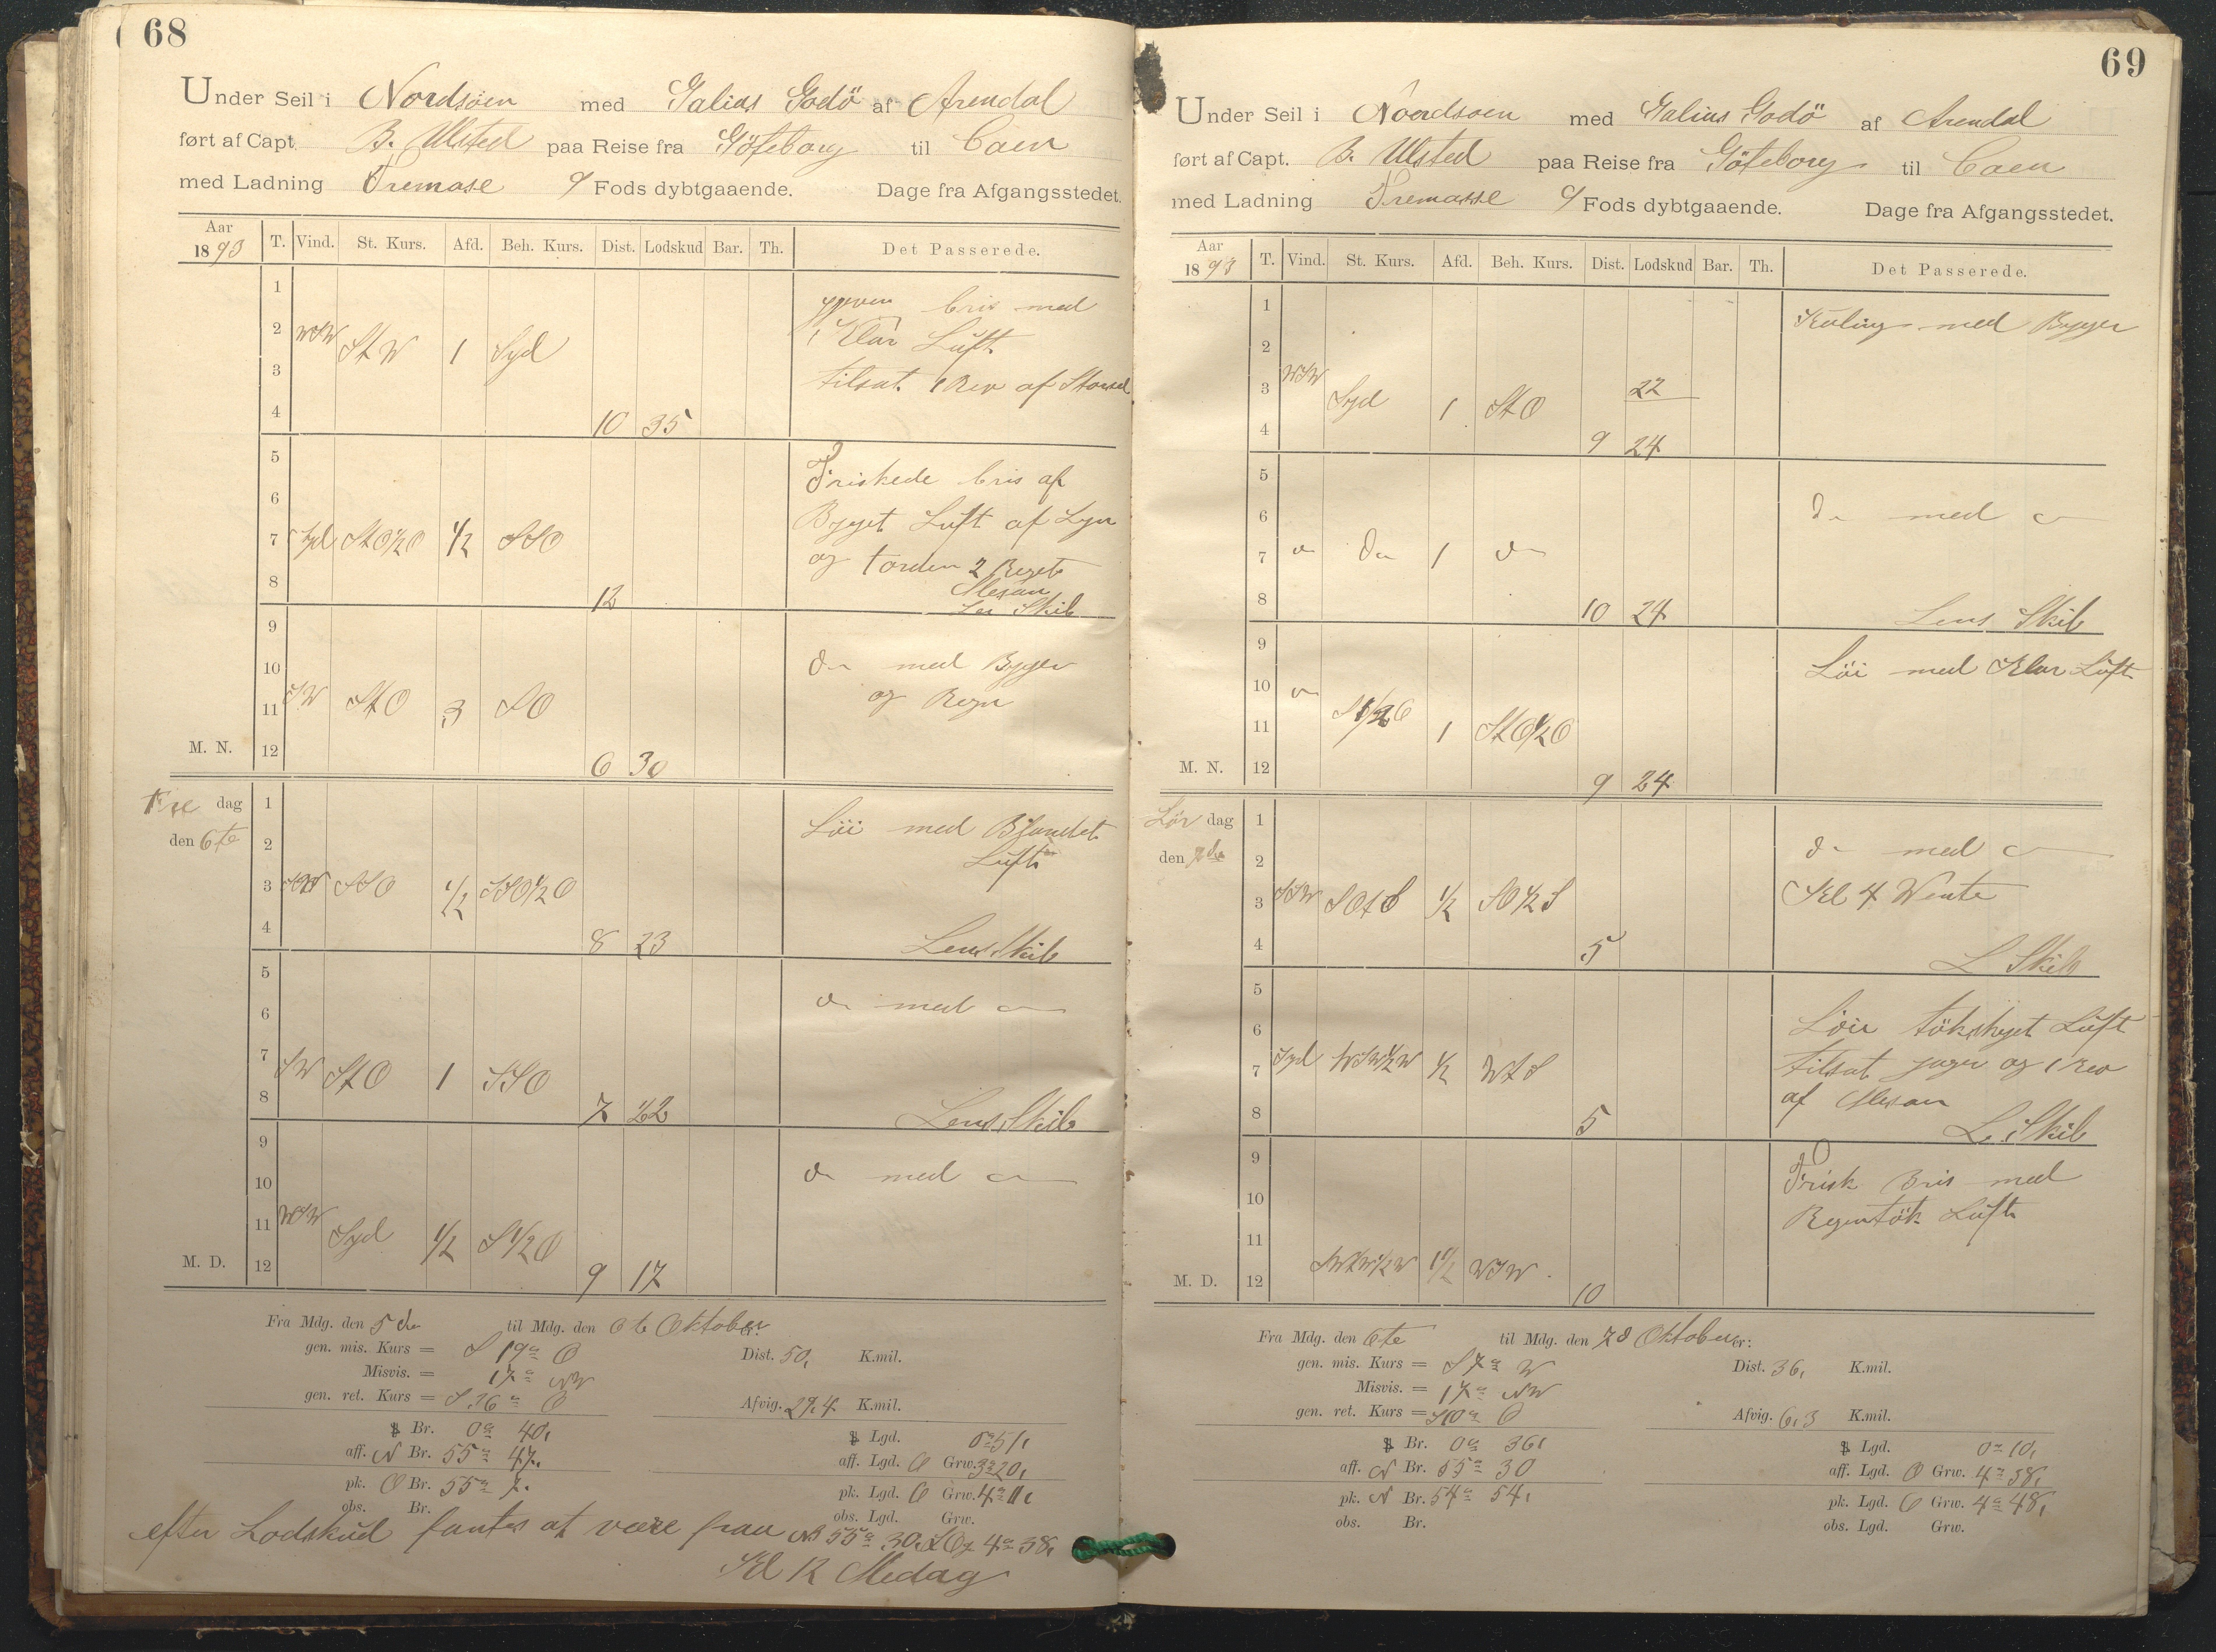 68
Under Seil i Nordsöen med Galias Godö af Arendal
ført af Capt. B. Ulsted paa Reise fra Göteborg til Caen
med Ladning Tremase 9 Fods dybtgaaende. Dage fra Afgangsstedet.
Aar 1893 T. Vind. St. Kurs. Afd. Beh. Kurs. Dist. Lodskud Bar. Th. Det Passerede.
1 bris med
2 WSW StW 1 Syd Klar Luft
3 tilsat 1 Rev af Storseil
4 10 35
5 Friskede bris af
6 Byget Luft af Lyn
7 Syd StO½O ½ SSO og torden 2
8 12 Mesan
Len Skib
9
10 do med Byger
11 SW StO 3 SO og Regn
M. N. 12 6 30
Fre dag 1 Löi med Blandet
den 6te 2 Luft
3 SSW SSO ½ SSO½O
4 8 23 Lens Skib
5
6 do med do
7 SW StO 1 SSO
8 7 22 Lens Skib
9
10 do med do
11 WSW Syd ½ S½O
M. D. 12 9 17
Fra Mdg. den 5de til Mdg. den 6te Oktober:
gen. mis. Kurs = S 19° O Dist. 50, K.mil.
Misvis. = 17° NW
gen. ret. Kurs = S 36° O Afvig. 29,4 K.mil.
Br. 0° 40, Lgd. 0° 51,
aff. N Br. 55° 47, aff. Lgd. O Grw. 3° 20,
pk. O Br. 55° 7, pk. Lgd. O Grw. 4° 11,
obs. Br. obs. Lgd. Grw.
efter Lodskud fantes at være paa NB 55° 30, LOg 4° 38,
Kl 12 Medag
69
Under Seil i Noordsoen med Galius Godö af Arendal
ført af Capt. B. Ulsted paa Reise fra Göteborg til Caen
med Ladning Tremasse 9 Fods dybtgaaende. Dage fra Afgangsstedet.
Aar 1893 T. Vind. St. Kurs. Afd. Beh. Kurs. Dist. Lodskud Bar. Th. Det Passerede.
1 Kuling med Byger
2
3 WSW Syd 1 StO 22
4 9 24
5
6 do med do
7 do do 1 do
8 10 24 Lens Skib
9 Löi med Klar Luft
10 do
11 S½O 1 StO½O
M. N. 12 9 24
Lör dag 1
den 7de 2 do med do
3 SSW SOtS ½ SO½S Kl 4 Wente
4 5 L Skib
5
6 Löi tökskyet Luft
7 Syd WSW½W ½ WtS tilsat jager og 1 rev
8 5 af Mesan
L. Skib
9 Frisk Bris med
10 Regentök Luft
11
M. D. 12 1½ WSW 10
Fra Mdg. den 6te til Mdg. den 7d Oktober:
gen. mis. Kurs = S 7° W Dist. 36, K.mil.
Misvis. = 17° NW
gen. ret. Kurs = S 10° O Afvig. 6,3 K.mil.
Br. 0° 36, Lgd. 0° 10,
aff. N Br. 55° 30 aff. Lgd. O Grw. 4° 38,
pk. N Br. 54° 54, pk. Lgd. O Grw. 4° 48,
obs. Br. obs. Lgd. Grw.